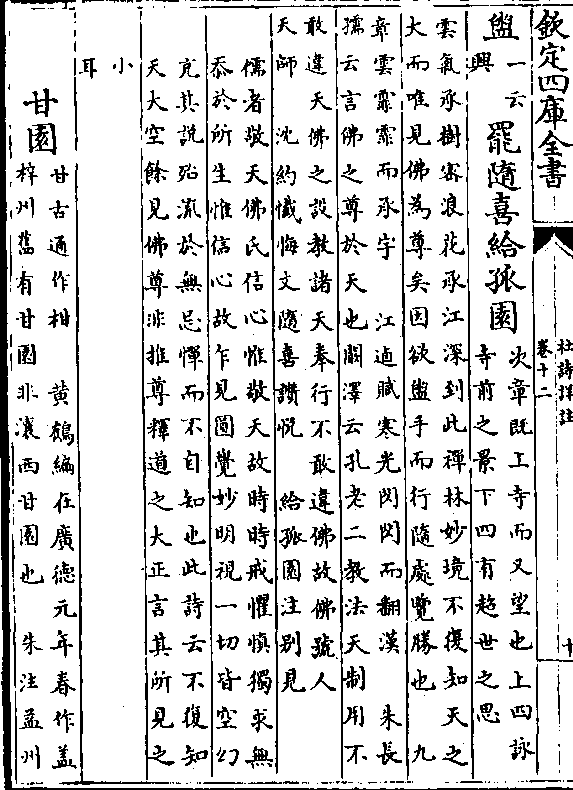 欽定四庫全書
杜詩詳註
卷十二
十
盥
一云
興
罷隨喜給孤園
次章既上寺而又望也上四詠
寺前之景下四有超世之思
雲氣承樹密浪花承江深到此禪林妙境不復知天之
大而唯見佛為尊矣因欲盥手而行隨處覽勝也 九
章雲霏霏而承宇 江逌賦寒光閃閃而翻漢 朱長
孺云言佛之尊於天也闞澤云孔老二教法天制用不
敢違天佛之設教諸天奉行不敢違佛故佛號人
天師 沈約懺悔文隨喜讚悅 給孤園注别見
儒者敬天佛氏信心惟敬天故時時戒懼慎獨求無
忝於所生惟信心故乍見圓覺妙明視一切皆空幻
充其說殆流於無忌憚而不自知也此詩云不復知
天大空餘見佛尊非推尊釋道之大正言其所見之
小
耳
甘園
甘古通作柑 黄鶴編在廣德元年春作蓋
梓州舊有甘園非瀼西甘園也 朱注孟州